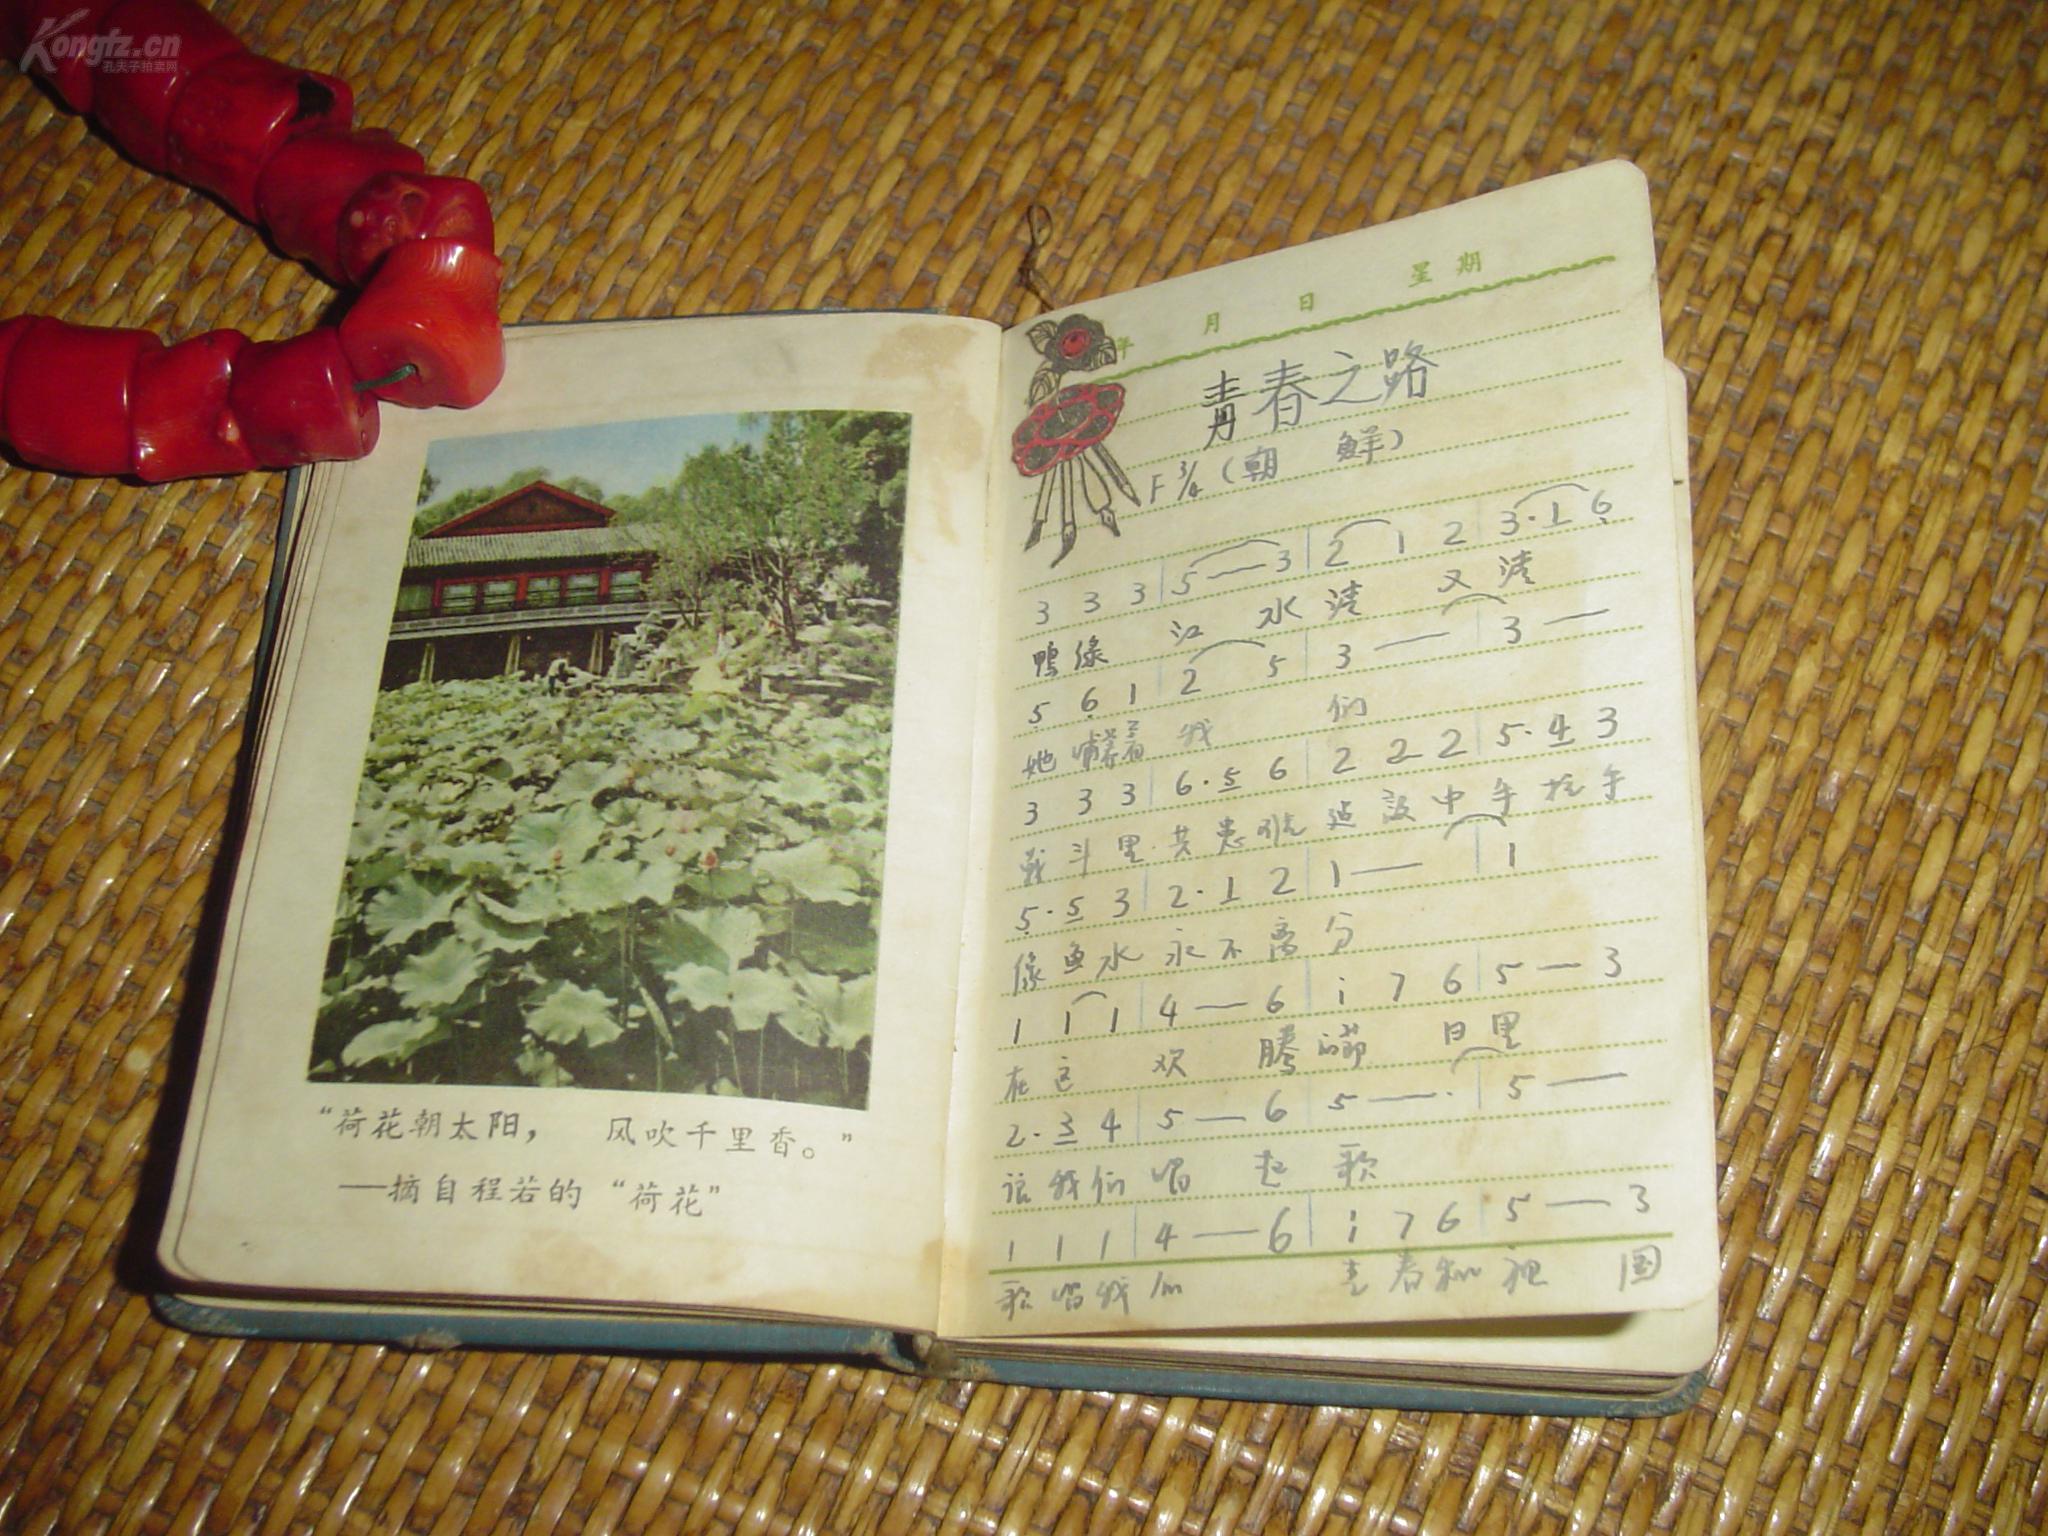 Kongfz.cn
孔夫子拍卖网
“荷花朝太阳， 风吹千里香。”
——摘自程若的“荷花”
年 月 日 星期
青春之路
F 3/4 (朝 鲜)
3 3 3 | 5 — 3 | 2 1 2 | 3·1 6
鴨綠 江 水 清 又 清
5 6 1 | 2 5 | 3 — | 3 —
她 哺養着 我 们
3 3 3 | 6·5 6 | 2 2 2 | 5·4 3
戰斗里 共患难 建設中 手挽手
5·5 3 | 2·1 2 | 1 — | 1
像鱼水 永不离 分
1 1 1 | 4 — 6 | i 7 6 | 5 — 3
在这 欢 腾 節 日里
2·3 4 | 5 — 6 | 5 — · | 5 —
让我们 唱 起 歌
1 1 1 | 4 — 6 | i 7 6 | 5 — 3
歌唱我 们 青春和祖 国